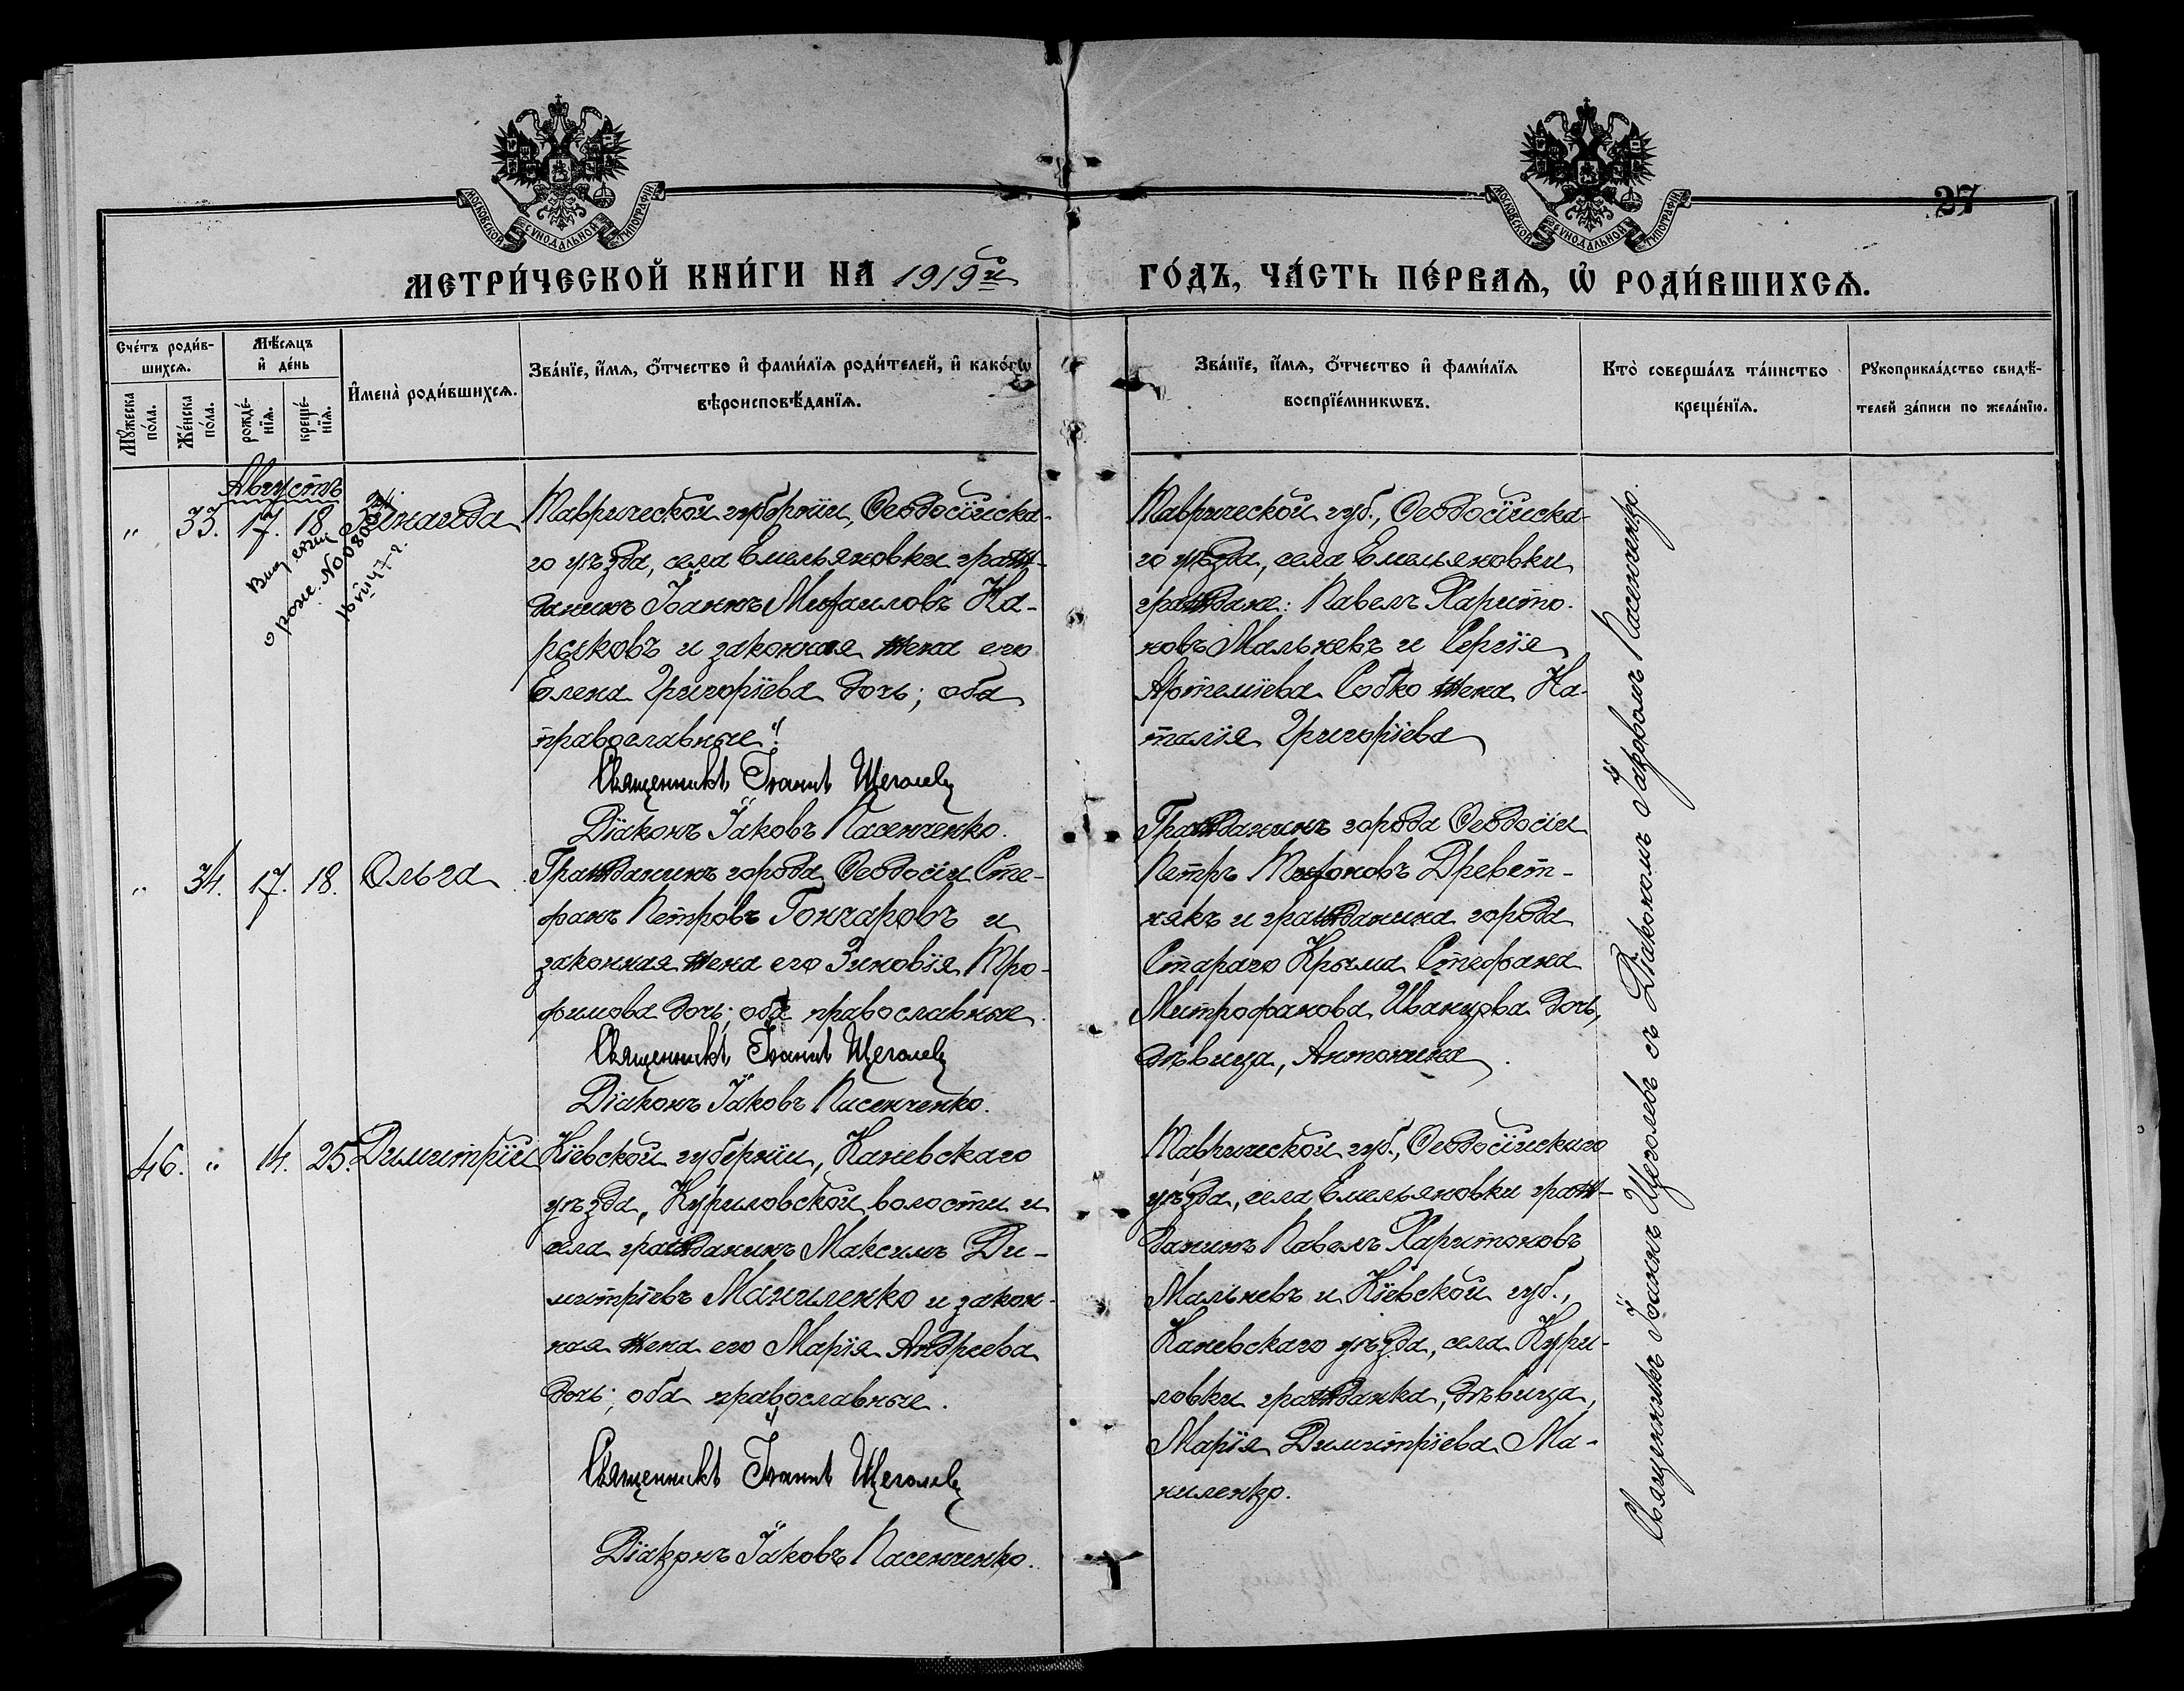 МОСКОВСКОЙ СУНОДАЛЬНОЙ ТИПОГРАФІИ
МОСКОВСКОЙ СУНОДАЛЬНОЙ ТИПОГРАФІИ
27
МЕТРИ́ЧЕСКОЙ КНИ́ГИ НА 1919й
ГО́ДЪ, ЧА́СТЬ ПЕ́РВАѦ, Ѡ РОДИ́ВШИХСѦ.
Сче́тъ роди́в-
шихсѧ.
Мꙋ́жеска
по́ла.
Же́нска
по́ла.
Мѣ́сѧцъ
и҆ де́нь
рожде́-
нїѧ.
креще́-
нїѧ.
И҆мена̀ роди́вшихсѧ.
Зва́нїе, и҆́мѧ, ѻ҆́тчество и҆ фами́лїѧ роди́телей, и҆ како́гѡ
вѣроисповѣ́данїѧ.
Зва́нїе, и҆́мѧ, ѻ҆́тчество и҆ фами́лїѧ
воспрїе́мникѡвъ.
Кто̀ соверша́лъ та́инство
креще́нїѧ.
Рꙋкоприкла́дство свидѣ́-
телей за́писи по жела́нїю.
Августъ
„ 33. 17. 18. Зинаида
о рожд. №
Таврической губерніи, Ѳеодосійска-
го уѣзда, села Емельяновки граж-
данинъ Іоаннъ Михаиловъ На-
рыковъ и законная жена его
Елена Григоріева дочь; оба
православные.
Священникъ Іоаннъ Щеголевъ
Діаконъ Іаковъ Пасенченко.
Таврической губ., Ѳеодосійска-
го уѣзда, села Емельяновки
граждане: Павелъ Харито-
новъ Мальневъ и Сергія
Артеміева Собко жена На-
талія Григоріева
„ 34. 17. 18. Ольга
Гражданинъ города Ѳеодосіи Сте-
фанъ Петровъ Гончаровъ и
законная жена его Зиновія Тро-
фимова дочь; оба православные
Священникъ Іоаннъ Щеголевъ
Діаконъ Іаковъ Пасенченко.
Гражданинъ города Ѳеодосіи
Петръ Тихоновъ Древет-
някъ и гражданина города
Стараго Крыма Стефана
Митрофанова Иванцова дочь,
дѣвица, Антонина.
46. „ 14. 25. Димитрій
Кіевской губерніи, Каневскаго
уѣзда, Куриловской волости и
села гражданинъ Максимъ Ди-
митріевъ Маниленко и закон-
ная жена его Марія Андреева
дочь; оба православные.
Священникъ Іоаннъ Щеголевъ
Діаконъ Іаковъ Пасенченко.
Таврической губ., Ѳеодосійскаго
уѣзда, села Емельяновки граж-
данинъ Павелъ Харитоновъ
Мальневъ и Кіевской губ.,
Каневскаго уѣзда, села Кури-
ловки гражданка, дѣвица,
Марія Димитріева Ма-
ниленко.
Священникъ Іоаннъ Щеголевъ съ Діакономъ Іаковомъ Пасенченко.